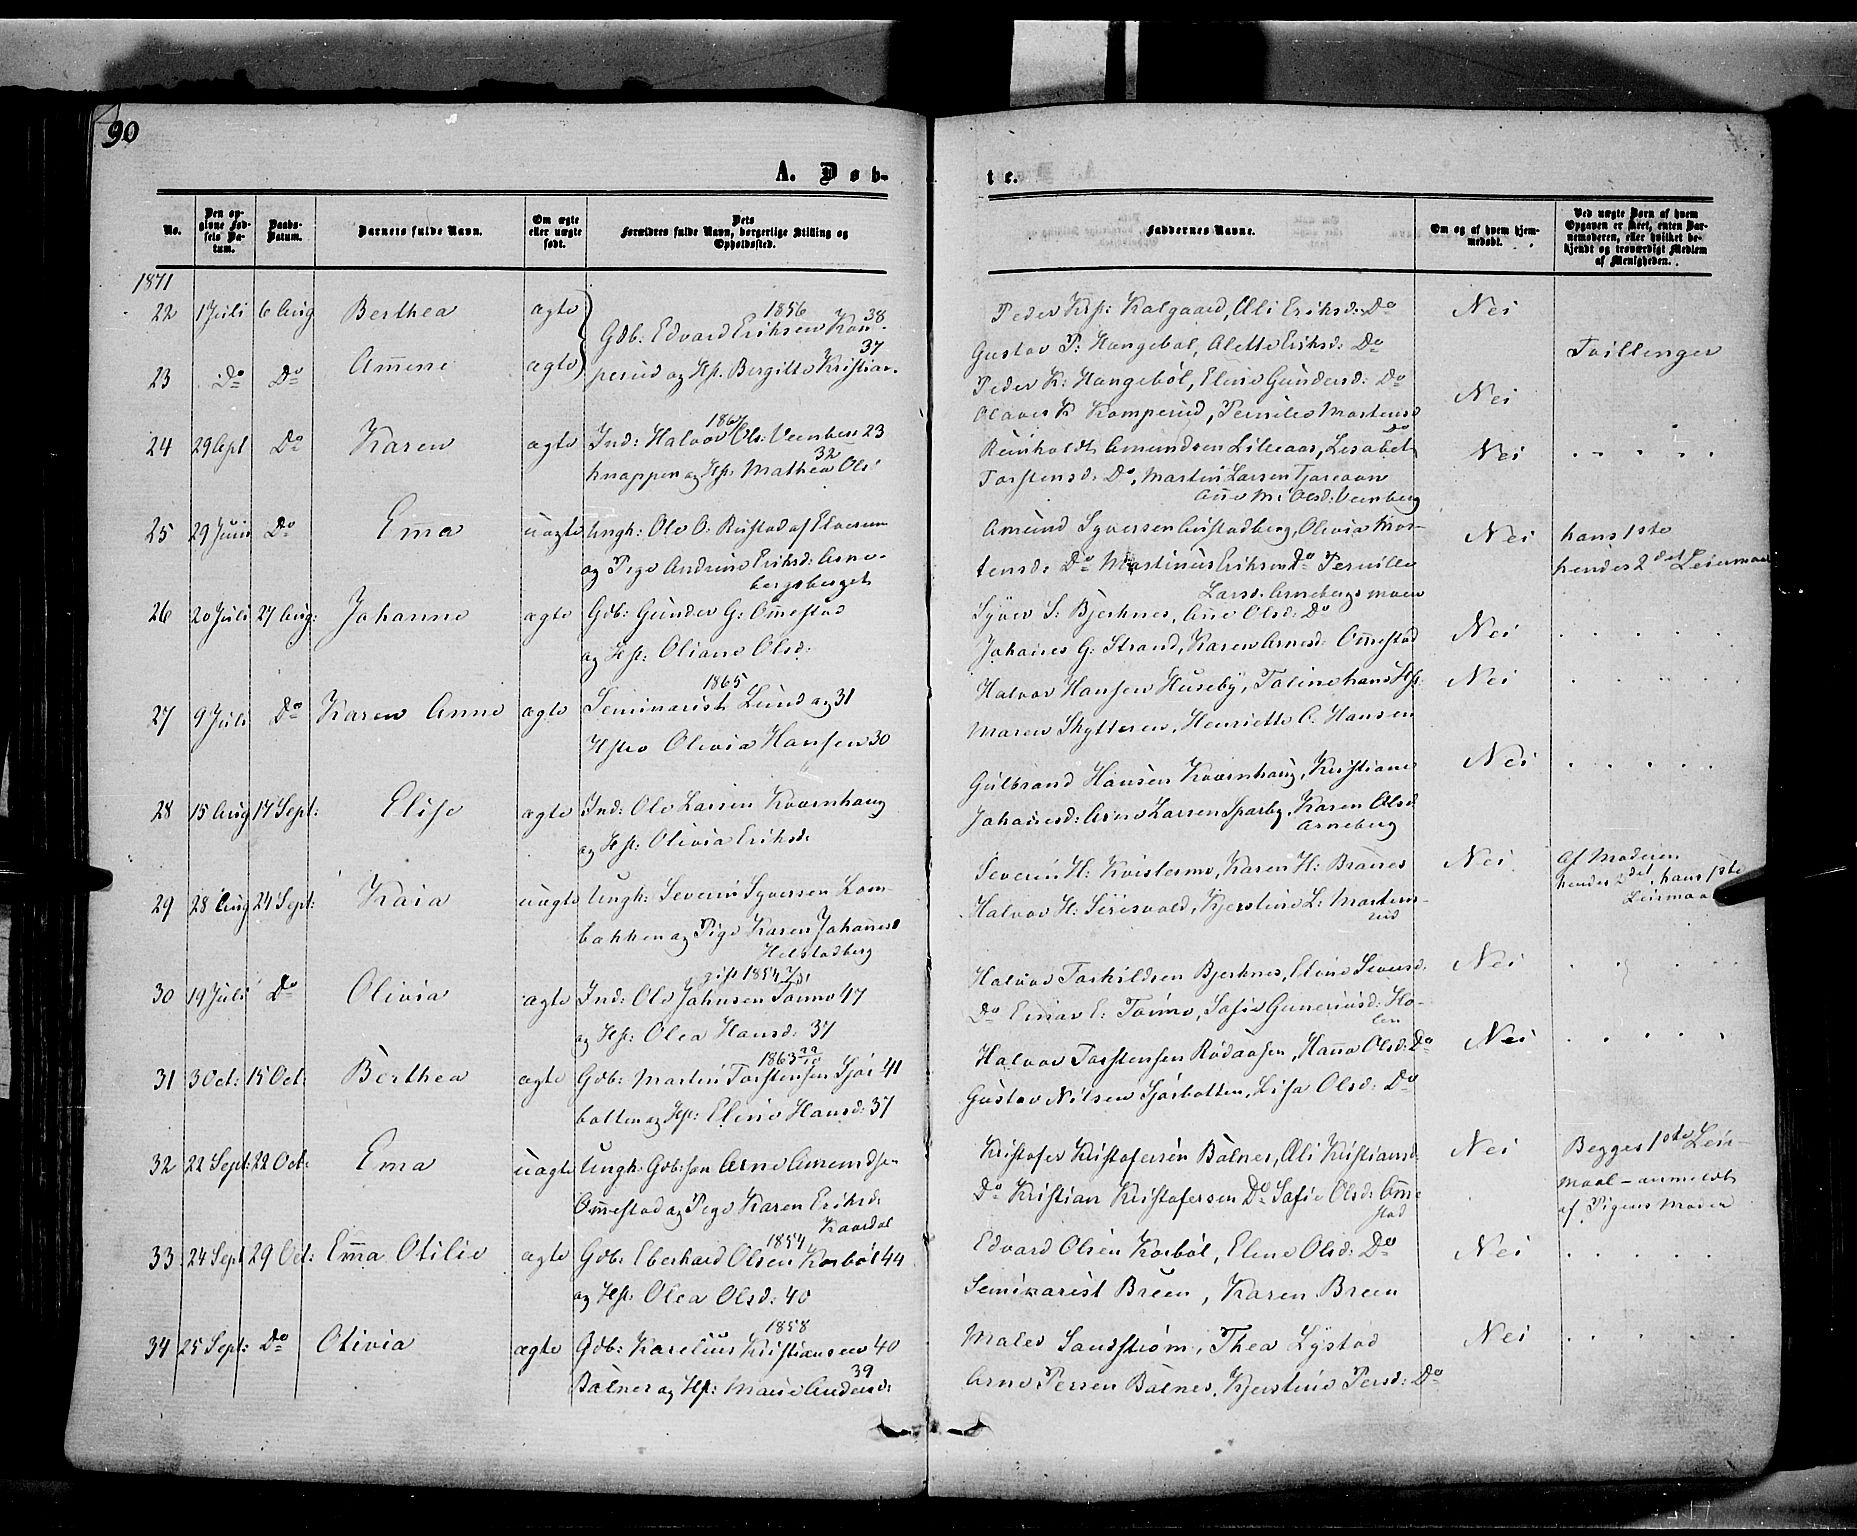 90
A. Døb-
te.
No.
Den opgivne Fødsels Datum.
Daabs-Datum.
Barnets fulde Navn.
Om ægte eller uægte født.
Dets Forældres fulde Navn, borgerlige Stilling og Opholdssted.
Faddernes Navne.
Om og af hvem hjemmedøbt.
Ved uægte Børn af hvem Opgaven er skeet, enten Barnemoderen, eller hvilket bekjendt og troværdigt Medlem af Menigheden.
1871
22 1 Juli 6 Aug Berthea ægte 1856 Gdb: Edvard Eriksen 38
Peder Kalgaard, Eli Eriksd: Do Nei
23 Do Do Amene ægte perud og Hst. Bergitte Kristian. 37
Gustav P: Hangebøl, Alette Eriksd: Do Tvillinger
Peder K: Hangebøl, Eline Gundersd: Do Nei
Olaves K Kamperud, Pernille Mortensd
24 29 Do Karen ægte 1867 Ind: Halvor Ols: 23
knappen og Hst: Mathea Ols: 32
Reinholdt Amundsen Lilleaas, Lisabet Do Nei
Torstensd: Do, Martin Larsen
Anne M: Olsd: Veenberg
25 29 Juni Do Ema uægte Ungk: Ole O. Rustad af Elverum
og Pige Andrine Eriksd: Arne-
bergsberget
Amund Syversen, Olivia Mor-
tensd: Do Martinus Eriksen Do Pernille
Larsd. Arnebergsmoen
Nei hans 1ste
hendes 2det Leiermaal
26 20 Juli 27 Aug: Johanne ægte Gdb: Gunder G: Ommestad
og Hst: Oliane Olsd:
Syver S: Bjerknes, Anne Olsd: Do
Johanes G: Strand, Karen Arnesd: Ommestad Nei
27 9 Juli Do Karen Anne ægte 1865 Seminarist Lund og 31
Hstro Olivia Hansen 30
Halvor Hansen Huseby, Taline hans Hst:
Maren Skytteren, Henriette C. Hansen Nei
28 15 Aug 17 Sept: Elise ægte Ind: Ole Larsen Kværnhaug
og Hst: Olivia Eriksd:
Gulbrand Hansen Kværnhaug, Kristiane
Johanesd: Arne Larsen Sparby, Karen Olsd
Arneberg
Nei
29 28 Aug 24 Sept: Kaia uægte Ungk: Severin Syversen Lom-
bakken og Pige Karen Johanesd
Helstadberg
Severin H: Kvistermo, Karen H: Branes
Halvor H: , Kjerstine L: Martens-
rud
Nei Af Moderen
hendes 2det, hans 1ste
Leiermaal
30 19 Juli Do Olivia ægte gift 1854 Ind: Ole Johnsen 47
og Hst: Olea Hansd: 37
Halvor Torkildsen Bjerknes, Eline Siversd:
Do Einar E: , Sofie Guneriusd: Ho-
len
Nei
31 3 Oct: 15 Oct: Berthea ægte 1863 22/10 Gdb: Martin Torstensen Sjør 41
botten og Hst: Eline Hansd: 37
Halvor Torstensen Rødaasen, Hanna Olsd: Do
Gustav Nilsen Sjørbotten, Lisa Olsd: Do Nei
32 22 Sept: 22 Oct: Ema uægte Ungk: Gdb:søn Arne Amundse-
Ommestad og Pige Karen Eriksd:
Kaardal
Kristofer Kristofersen Balnes, Eli Kristiansd
Do Kristian Kristofersen Do Sofie Olsd: Omme
stad
Nei Begges 1ste Leier-
maal - anmeldt
af Pigens Moder
33 24 Sept 29 Oct: Emma Otilie ægte 1854 Gdb: Eberhard Olsen Korbøl 44
og Hst: Olea Olsd: 40
Edvard Olsen Korbøl, Eline Olsd: Do
Seminarist Breen, Karen Breen Nei
34 25 Sept: Do Olivia ægte 1858 Gdb: Karelius Kristiansen 40
Balnes og Hst: Marie Andersd: 39
Maler Sandstrøm, Thea Lystad
Arne Persen Balnes, Kjerstine Persd: Do Nei